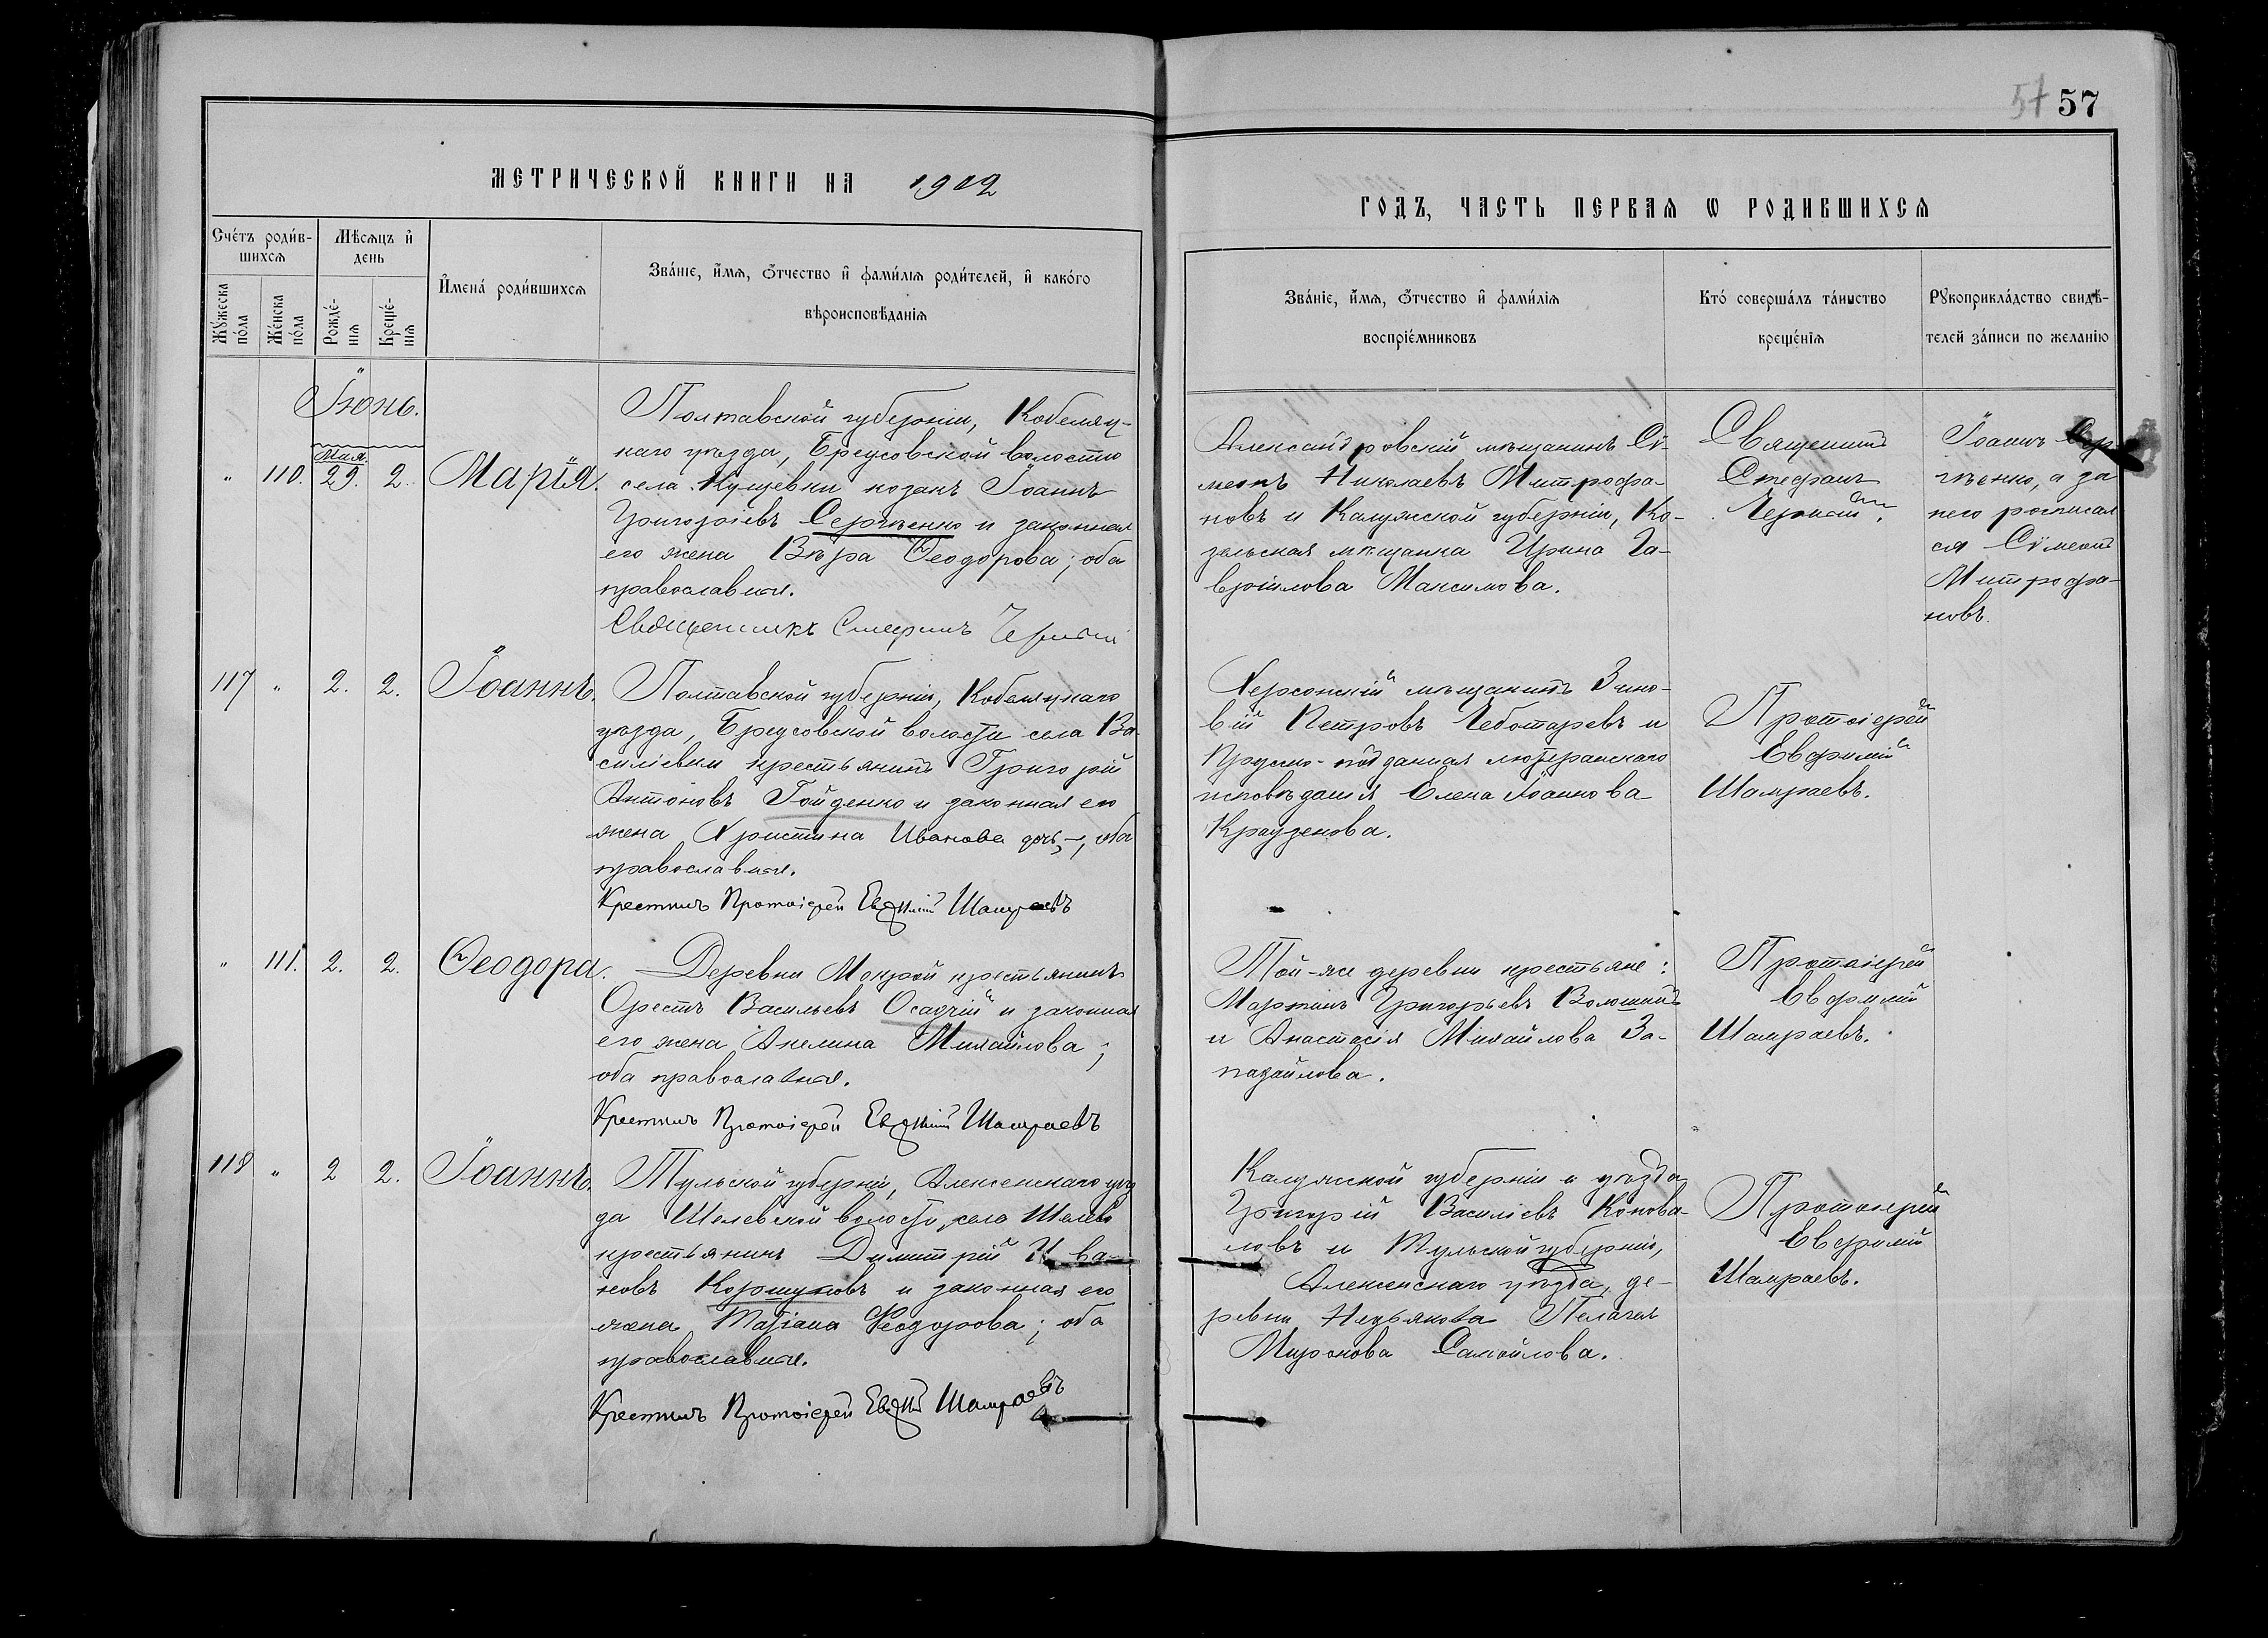 57 57
МЕТРИЧЕСКОЙ КНИГИ НА 1902
ГОДЪ, ЧАСТЬ ПЕРВАЯ Ѡ РОДИВШИХСЯ
Сче́тъ роди́в-
шихсѧ
Мѣсѧцъ и҆
день
Мꙋ́жеска
по́ла
Же́нска
по́ла
Рожде́-
нїѧ
Креще́-
нїѧ
И҆мена́ роди́вшихсѧ
Зва́нїе, и҆́мѧ, ѻ҆́тчество и҆ фами́лїѧ роди́телей, и҆ како́го
вѣроисповѣ́данїѧ
Зва́нїе, и҆́мѧ, ѻ҆́тчество и҆ фами́лїѧ
воспрїе́мниковъ
Кто́ соверша́лъ та́инство
креще́нїѧ
Рꙋкоприкла́дство свидѣ́-
телей за́писи по жела́нїю
Іюнь.
" 110. Мая 29. 2. Марія.
Полтавской губерніи, Кобеляц-
каго уѣзда, Бреусовской волости
села Кущевки козакъ Іоаннъ
Григоріевъ Сергѣенко и законная
его жена Вѣра Ѳеодорова; оба
православные.
Священникъ Стефанъ
Александровскій мѣщанинъ Сі-
меонъ Николаевъ Митрофа-
новъ и Калужской губерніи, Ко-
зельская мѣщанка Ирина Га-
вріилова Максимова.
Священникъ
Стефанъ
Іоаннъ Сер-
гѣенко, а за
него росписал
ся Сімеонъ
Митрофа-
новъ.
117 " 2. 2. Іоаннъ.
Полтавской губерніи, Кобеляцкаго
уѣзда, Бреусовской волости села Ва
силіевки крестьянинъ Григорій
Антоновъ Гойденко и законная его
жена Христина Иванова дочь, оба
православные.
Крестилъ Протоіерей Евфимій Шамраевъ
Херсонскій мѣщанинъ Зино-
вій Петровъ Чеботаревъ и
Прусско-подданная лютеранскаго
исповѣданія Елена Іоаннова
Краузенова.
Протоіерей
Евфимій
Шамраевъ.
" 111. 2. 2. Ѳеодора.
Деревни Мокрой крестьянинъ
Орестъ Васильевъ Осадчій и законная
его жена Акелина Михайлова;
оба православные.
Крестилъ Протоіерей Евфимій Шамраевъ
Той-же деревни крестьяне:
Мартинъ Григорьевъ Волошинъ
и Анастасія Михайлова За-
пагайлова.
Протоіерей
Евфимій
Шамраевъ.
118 " 2 2. Іоаннъ.
Тульской губерніи, Алексинскаго уѣз
да Шелевской волости, села Шелево
крестьянинъ Димитрій Ива-
новъ Коршуновъ и законная его
жена Татіана Ѳеодорова; оба
православные.
Крестилъ Протоіерей Евфимій Шамраевъ
Калужской губерніи и уѣзда
Григорій Василіевъ Конова-
ловъ и Тульской губерніи,
Алексинскаго уѣзда, де-
ревни Пелагея
Миронова Самойлова.
Протоіерей
Евфимій
Шамраевъ.